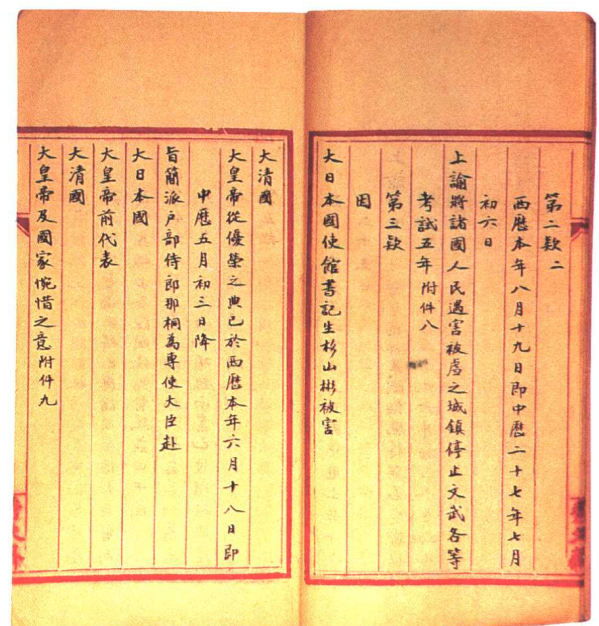 第二款二
西曆本年八月十九日即中曆二十七年七月
初六日
上諭將諸國人民遇害被虐之城鎮停止文武各等
考試五年附件八
第三款
因
大日本國使館書記生杉山彬被害
大清國
大皇帝從優榮之典已於西曆本年六月十八日即
中曆五月初三日降
旨簡派戶部侍郎那桐為專使大臣赴
大日本國
大皇帝前代表
大清國
大皇帝及國家惋惜之意附件九